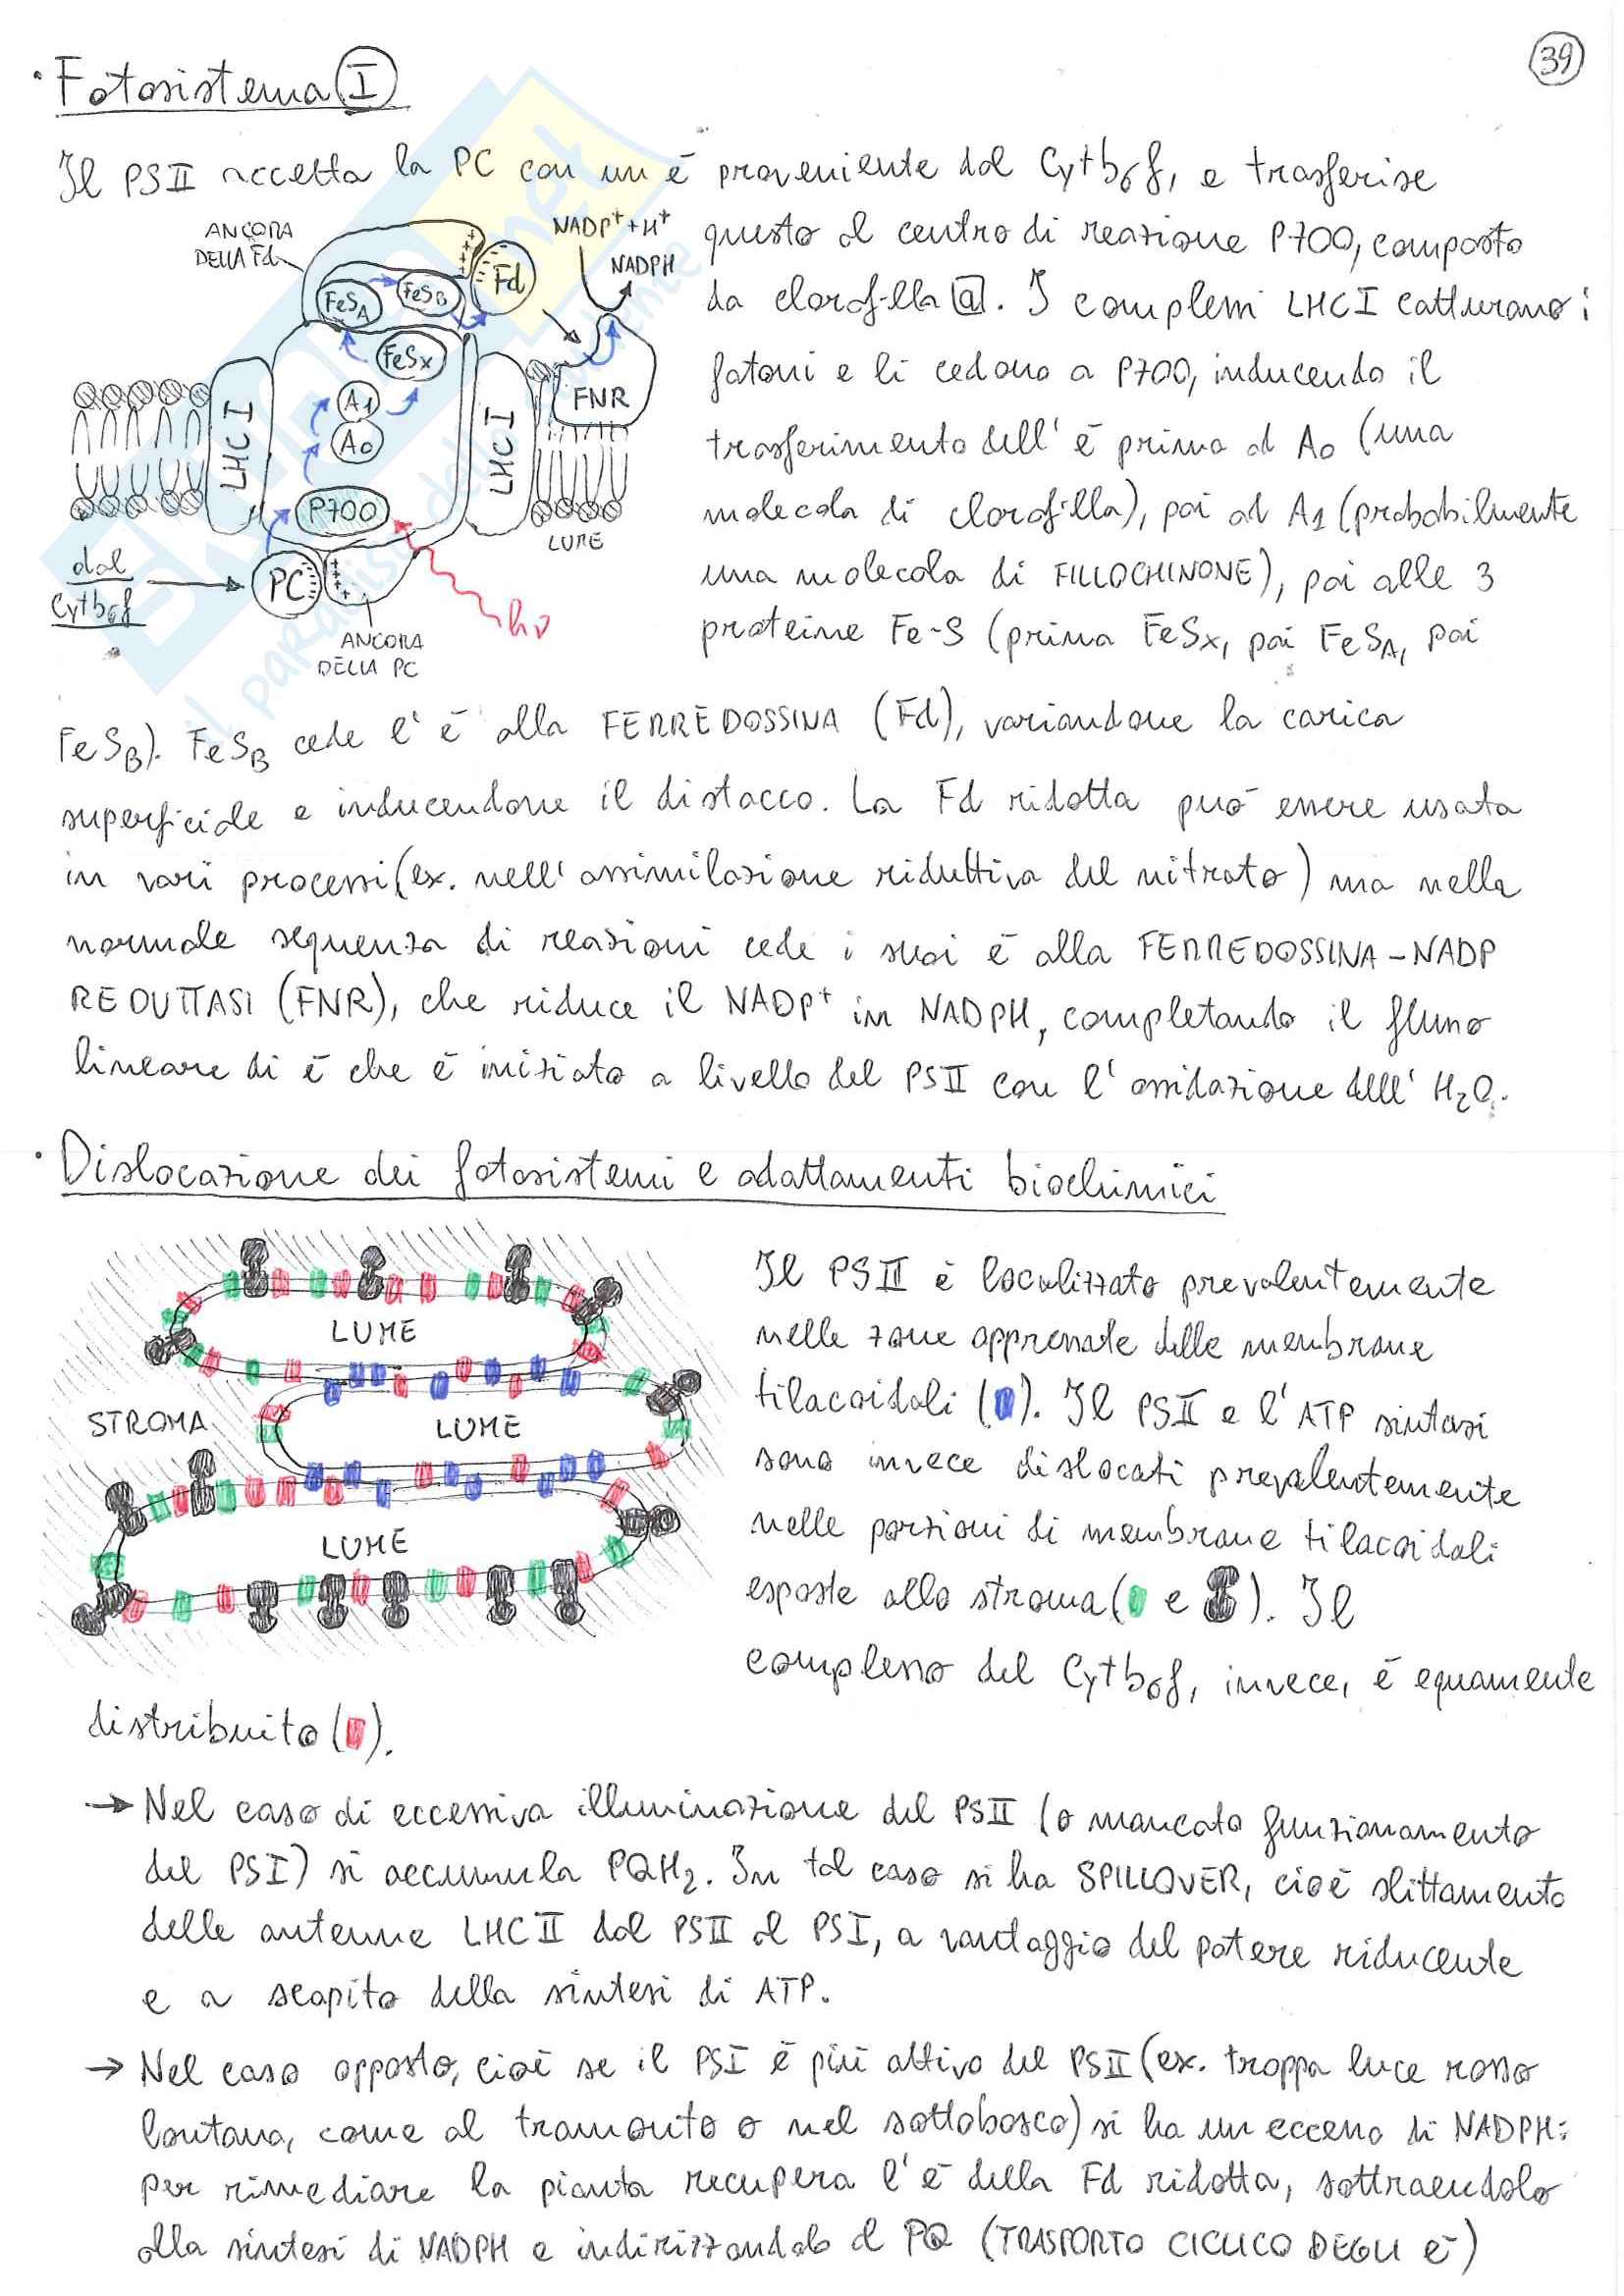 39
· Fotosistema I
Il PSII accetta la PC con un é proveniente dal Cytb6f, e trasferisce
questo al centro di reazione P700, composto
da clorofilla a. I complessi LHCI catturano i
fotoni e li cedono a P700, inducendo il
trasferimento dell' é prima ad A0 (una
molecola di clorofilla), poi ad A1 (probabilmente
una molecola di FILLOCHINONE), poi alle 3
proteine Fe-S (prima FeSx, poi FeSA, poi
FeSB). FeSB cede l' é alla FERREDOSSINA (Fd), variandone la carica
superficiale e inducendone il distacco. La Fd ridotta può essere usata
in vari processi (ex. nell'assimilazione riduttiva del nitrato) ma nella
normale sequenza di reazioni cede i suoi é alla FERREDOSSINA-NADP
REDUTTASI (FNR), che riduce il NADP+ in NADPH, completando il flusso
lineare di é che è iniziato a livello del PSII con l'ossidazione dell' H2O.
ANCORA
DELLA Fd
FeSA
FeSB
Fd
NADP+ + H+
NADPH
FeSx
LHCI
A1
A0
LHCI
FNR
P700
LUME
dal
Cytb6f
PC
hν
ANCORA
DELLA PC
· Dislocazione dei fotosistemi e adattamenti biochimici
LUME
STROMA
LUME
LUME
Il PSII è localizzato prevalentemente
nelle zone appressate delle membrane
tilacoidali ( ). Il PSII e l'ATP sintasi
sono invece dislocati prevalentemente
nelle porzioni di membrane tilacoidali
esposte allo stroma ( e ). Il
complesso del Cytb6f, invece, è equamente
distribuito ( ).
→ Nel caso di eccessiva illuminazione del PSII (o mancato funzionamento
del PSI) si accumula PQH2. In tal caso si ha SPILLOVER, cioè slittamento
delle antenne LHCII dal PSII al PSI, a vantaggio del potere riducente
e a scapito della sintesi di ATP.
→ Nel caso opposto, cioè se il PSI è più attivo del PSII (ex. troppa luce rosso
lontana, come al tramonto o nel sottobosco) si ha un eccesso di NADPH:
per rimediare la pianta recupera l' é della Fd ridotta, sottraendolo
alla sintesi di NADPH e indirizzandolo al PQ (TRASPORTO CICLICO DEGLI é)